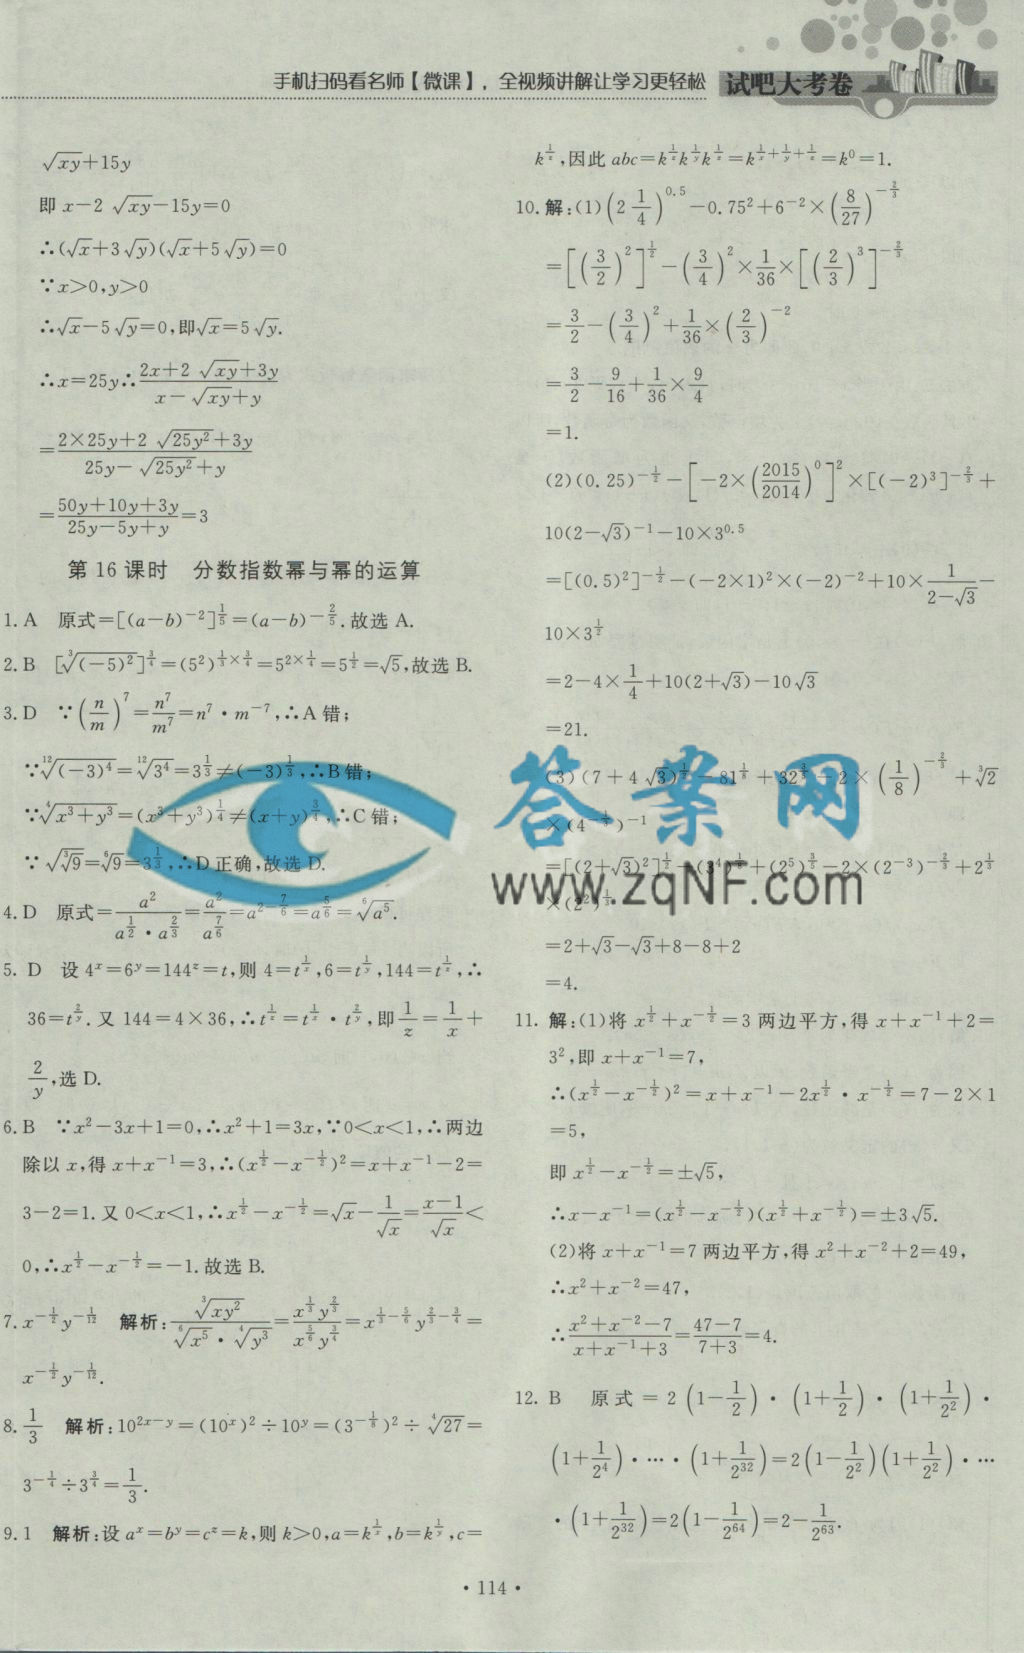 手机扫码看名师【微课】，全视频讲解让学习更轻松
试吧大考卷
√(xy)+15y
即 x−2 √(xy)−15y=0
∴(√x+3√y)(√x+5√y)=0
∵x>0,y>0
∴√x−5√y=0,即√x=5√y.
∴x=25y∴(2x+2√(xy)+3y)/(x−√(xy)+y)
=(2×25y+2√(25y²)+3y)/(25y−√(25y²)+y)
=(50y+10y+3y)/(25y−5y+y)=3
第 16 课时 分数指数幂与幂的运算
1. A 原式=[(a−b)^(−2)]^(1/5)=(a−b)^(−2/5).故选 A.
2. B [∛((−5)²)]^(3/4)=(5²)^(1/3×3/4)=5^(2×1/4)=5^(1/2)=√5,故选 B.
3. D ∵(n/m)^7=n^7/m^7=n^7·m^(−7),∴A 错;
∵¹²√((−3)^4)=¹²√(3^4)=3^(1/3)≠(−3)^(1/3),∴B错;
∵⁴√(x³+y³)=(x³+y³)^(1/4)≠(x+y)^(3/4),∴C错;
∵√(∛9)=⁶√9=3^(1/3),∴D正确,故选 D.
4. D 原式=a²/(a^(1/2)·a^(2/3))=a²/a^(7/6)=a^(2−7/6)=a^(5/6)=⁶√(a^5).
5. D 设 4^x=6^y=144^z=t,则 4=t^(1/x),6=t^(1/y),144=t^(1/z),∴
36=t^(2/y).又 144=4×36,∴t^(1/z)=t^(1/x)·t^(2/y),即 1/z=1/x+
2/y,选 D.
6. B ∵x²−3x+1=0,∴x²+1=3x,∵0<x<1,∴两边
除以 x,得 x+x^(−1)=3,∴(x^(1/2)−x^(−1/2))²=x+x^(−1)−2=
3−2=1.又 0<x<1,∴x^(1/2)−x^(−1/2)=√x−1/√x=(x−1)/√x<
0,∴x^(1/2)−x^(−1/2)=−1.故选 B.
7. x^(−1/2)y^(−1/12) 解析:∛(xy²)/(⁶√(x^5)·⁴√(y³))=x^(1/3)y^(2/3)/(x^(5/6)y^(3/4))=x^(1/3−5/6)y^(2/3−3/4)=
x^(−1/2)y^(−1/12).
8. 1/3 解析:10^(2x−y)=(10^x)²÷10^y=(3^(−1/8))²÷⁴√27=
3^(−1/4)÷3^(3/4)=1/3.
9. 1 解析:设 a^x=b^y=c^z=k,则 k>0,a=k^(1/x),b=k^(1/y),c=
k^(1/z),因此 abc=k^(1/x)k^(1/y)k^(1/z)=k^(1/x+1/y+1/z)=k^0=1.
10. 解:(1)(2 1/4)^0.5−0.75²+6^(−2)×(8/27)^(−2/3)
=[(3/2)²]^(1/2)−(3/4)²×1/36×[(2/3)³]^(−2/3)
=3/2−(3/4)²+1/36×(2/3)^(−2)
=3/2−9/16+1/36×9/4
=1.
(2)(0.25)^(−1/2)−[−2×(2015/2014)^0]²×[(−2)³]^(−2/3)+
10(2−√3)^(−1)−10×3^0.5
=[(0.5)²]^(−1/2)−(−2×1)²×(−2)^(−2)+10×1/(2−√3)−
10×3^(1/2)
=2−4×1/4+10(2+√3)−10√3
=21.
(3)(7+4√3)^(1/2)−81^(1/8)+32^(3/5)−2×(1/8)^(−2/3)+∛2
×(4^(−1/3))^(−1)
=[(2+√3)²]^(1/2)−(3^4)^(1/8)+(2^5)^(3/5)−2×(2^(−3))^(−2/3)+2^(1/3)
×(2²)^(1/3)
=2+√3−√3+8−8+2
=4.
11. 解:(1)将 x^(1/2)+x^(−1/2)=3 两边平方,得 x+x^(−1)+2=
3²,即 x+x^(−1)=7,
∴(x^(1/2)−x^(−1/2))²=x+x^(−1)−2x^(1/2)·x^(−1/2)=7−2×1
=5,
即 x^(1/2)−x^(−1/2)=±√5,
∴x−x^(−1)=(x^(1/2)−x^(−1/2))(x^(1/2)+x^(−1/2))=±3√5.
(2)将 x+x^(−1)=7 两边平方,得 x²+x^(−2)+2=49,
∴x²+x^(−2)=47,
∴(x²+x^(−2)−7)/(x+x^(−1)+3)=(47−7)/(7+3)=4.
12. B 原式=2(1−1/2)·(1+1/2)·(1+1/2²)·
(1+1/2^4)·…·(1+1/2^32)=2(1−1/2²)(1+1/2²)·…
·(1+1/2^32)=2(1−1/2^64)=2−1/2^63.
答案网
www.zqNF.com
·114·